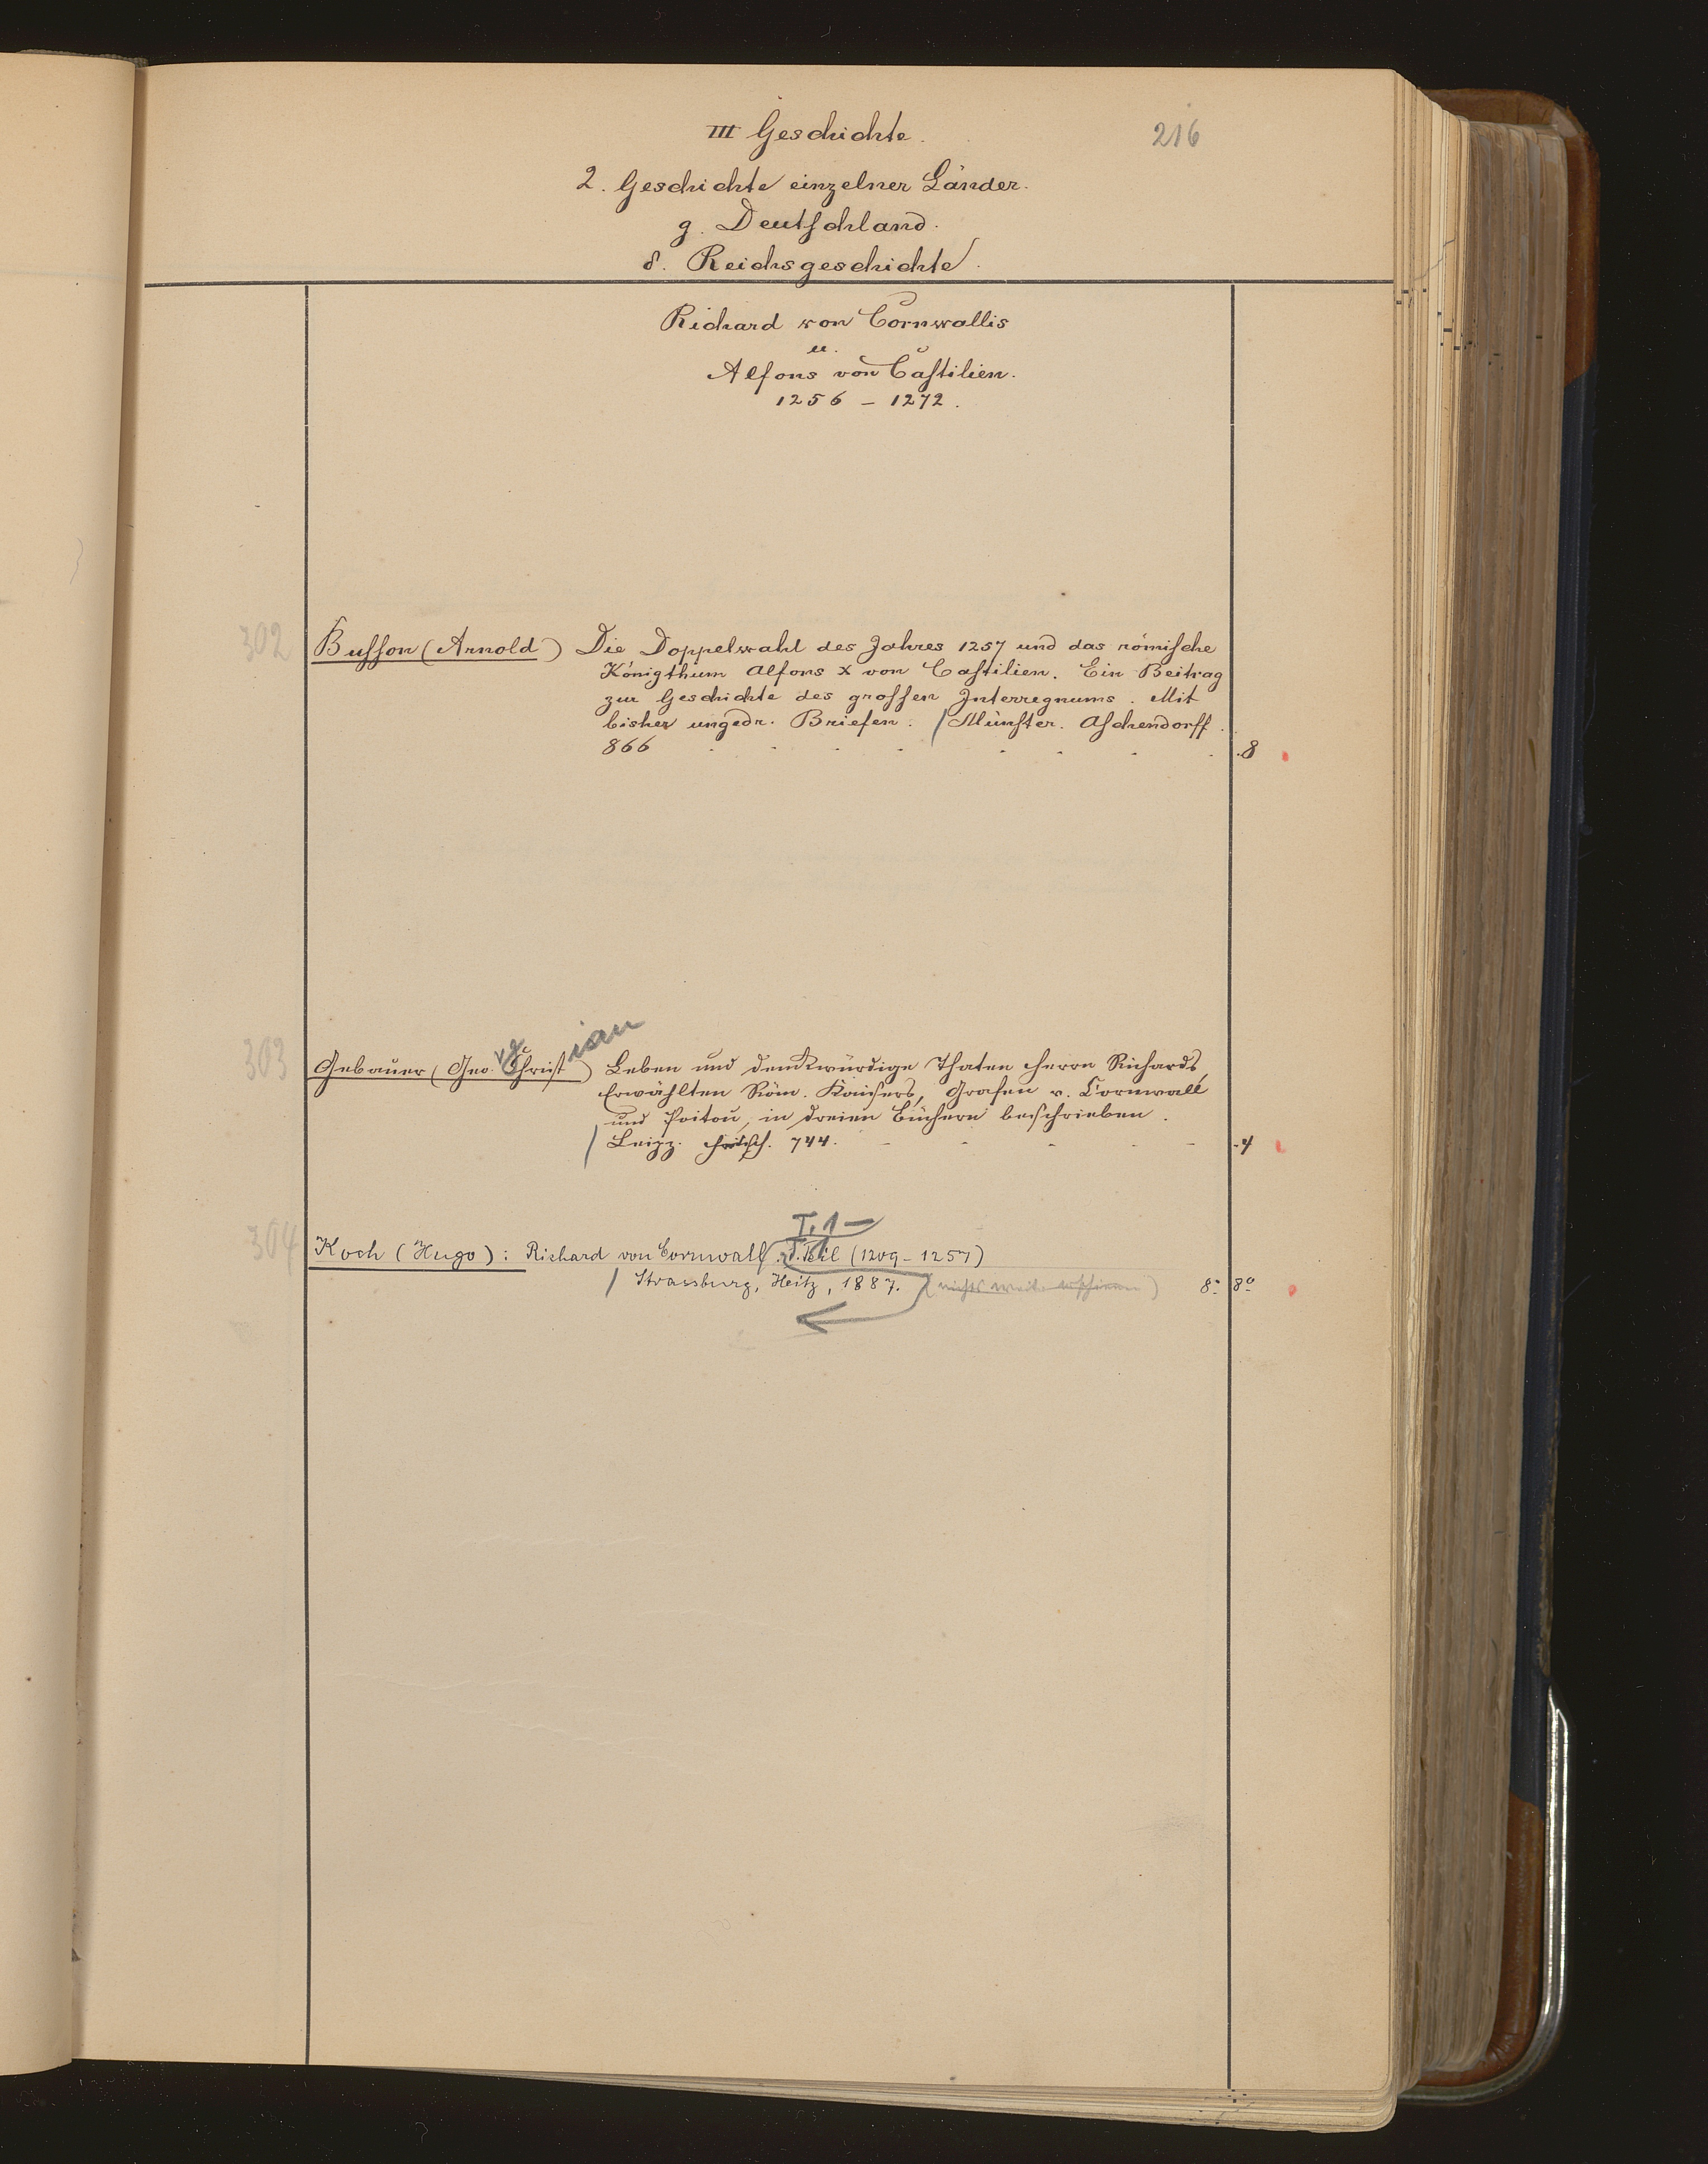 216
III Geschichte.
2. Geschichte einzelner Länder.
g. Deutschland.
δ. Reichsgeschichte.
Richard von Cornwallis
u.
Alfons von Castilien.
1256 – 1272.
302 Busson (Arnold) Die Doppelwahl des Jahres 1257 und das römische
Königthum Alfons X von Castilien. Ein Beitrag
zur Geschichte des grossen Interregnums. Mit
bisher ungedr. Briefen. / Münster. Aschendorff.
866 8
303 Gebauer (Geo. Christian) Leben und denkwürdige Thaten Herrn Richards,
Erwählten Röm. Kaisers, Grafen v. Cornwall
und Poitou, in dreien Büchern beschrieben.
/ Leipz. 744. 4
I, 1 –
304 Koch (Hugo): Richard von Cornwall. I. Teil (1209–1257)
/ Strassburg, Heitz, 1887. 8° 8°